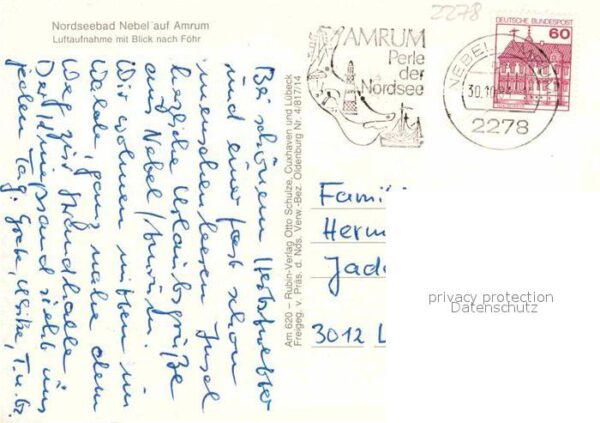 Nordseebad Nebel auf Amrum
Luftaufnahme mit Blick nach Föhr
2278
AMRUM
Perle
der
Nordsee
NEBEL
30.10.
2278
DEUTSCHE BUNDESPOST
60
Bei schönem Herbstwetter
und einer fast schon
menschenleeren Insel
herzliche Urlaubsgrüße
aus Nebel/Amrum.
Wir wohnen mitten im
Walde, ganz nahe dem
Weg zur Strandhalle
Der Kniepsand sieht uns
jeden Tag.
Am 620 – Rubin-Verlag Otto Schulze, Cuxhaven und Lübeck
Freigeg. v. Präs. d. Nds. Verw.-Bez. Oldenburg Nr. 4/817/14
Famil
Herm
Jad
3012 L
privacy protection
Datenschutz